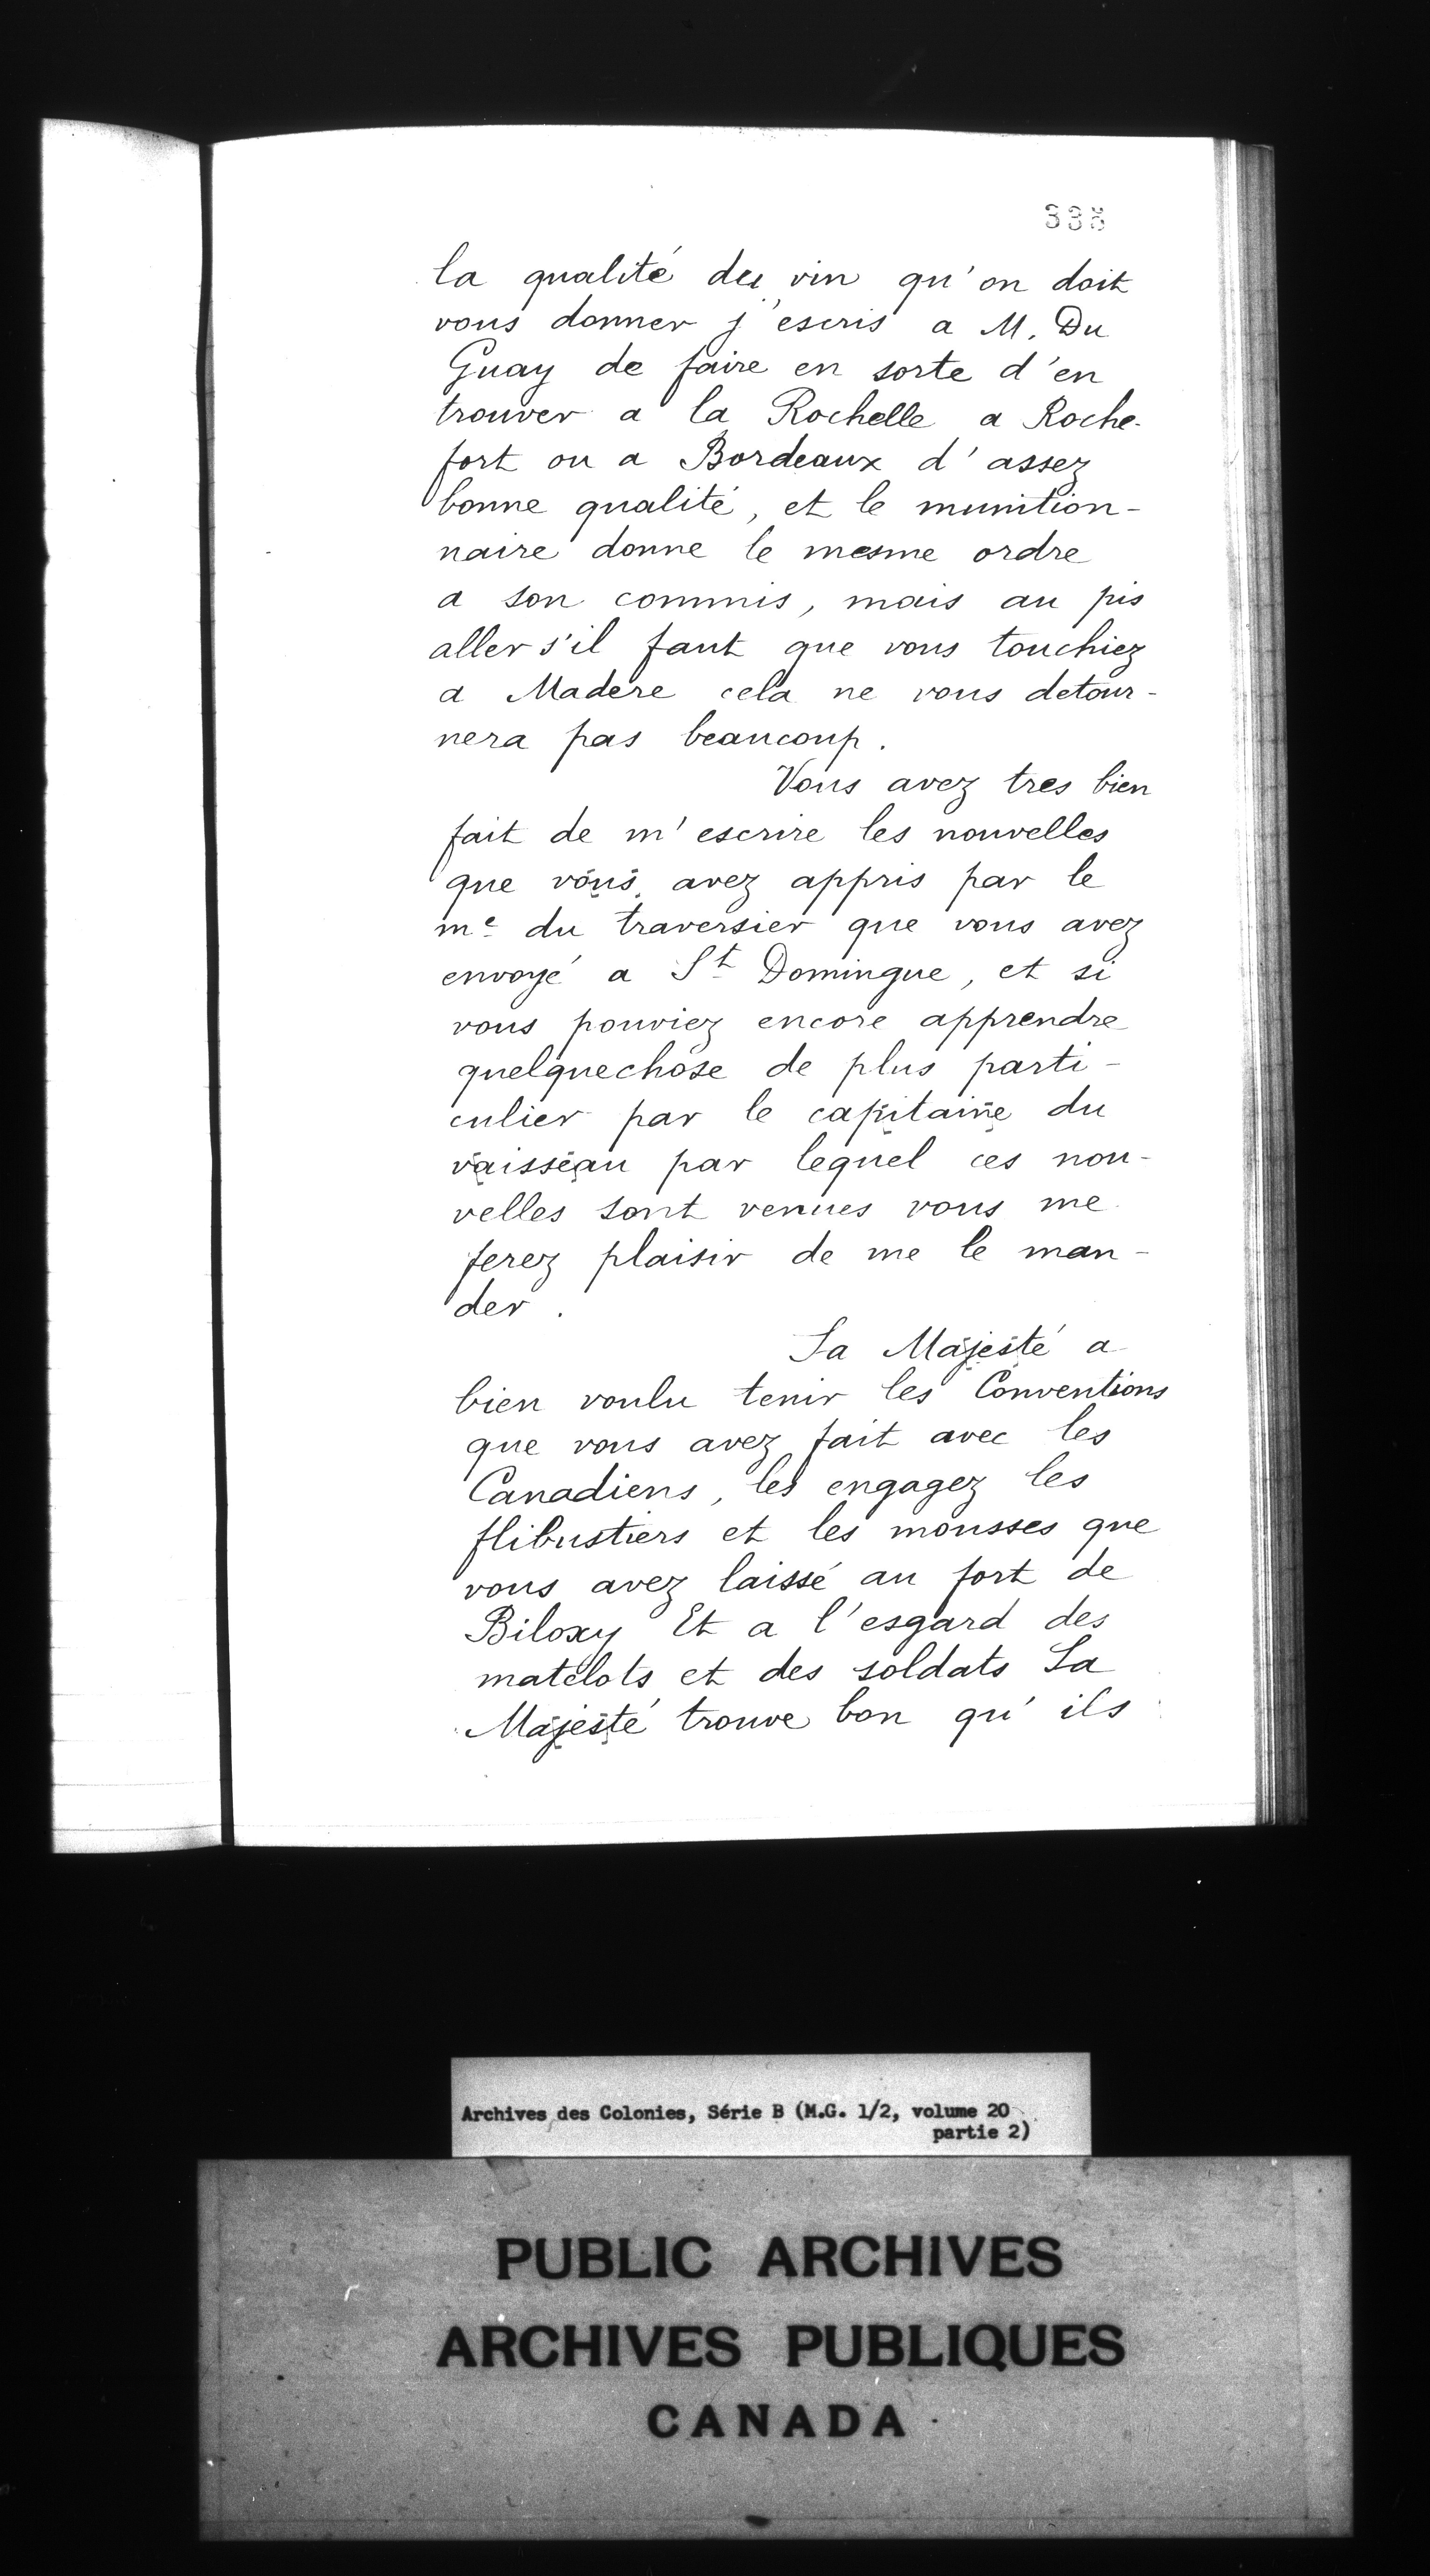 338
la qualité du vin qu'on doit
vous donner j'escris a M. Du
Guay de faire en sorte d'en
trouver a la Rochelle a Roche-
fort ou a Bordeaux d'assez
bonne qualité, et le munition-
naire donne le mesme ordre
a son commis, mais au pis
aller s'il faut que vous touchiez
a Madere cela ne vous detour-
nera pas beaucoup.
Vous avez tres bien
fait de m'escrire les nouvelles
que vous avez appris par le
me du traversier que vous avez
envoyé a St Domingue, et si
vous pouviez encore apprendre
quelquechose de plus parti-
culier par le capitaine du
vaisseau par lequel ces nou-
velles sont venues vous me
ferez plaisir de me le man-
der.
Sa Majesté a
bien voulu tenir les Conventions
que vous avez fait avec les
Canadiens, les engagez les
flibustiers et les mousses que
vous avez laissé au fort de
Biloxy Et a l'esgard des
matelots et des soldats Sa
Majesté trouve bon qu'ils
Archives des Colonies, Série B (M.G. 1/2, volume 20
partie 2)
PUBLIC ARCHIVES
ARCHIVES PUBLIQUES
CANADA